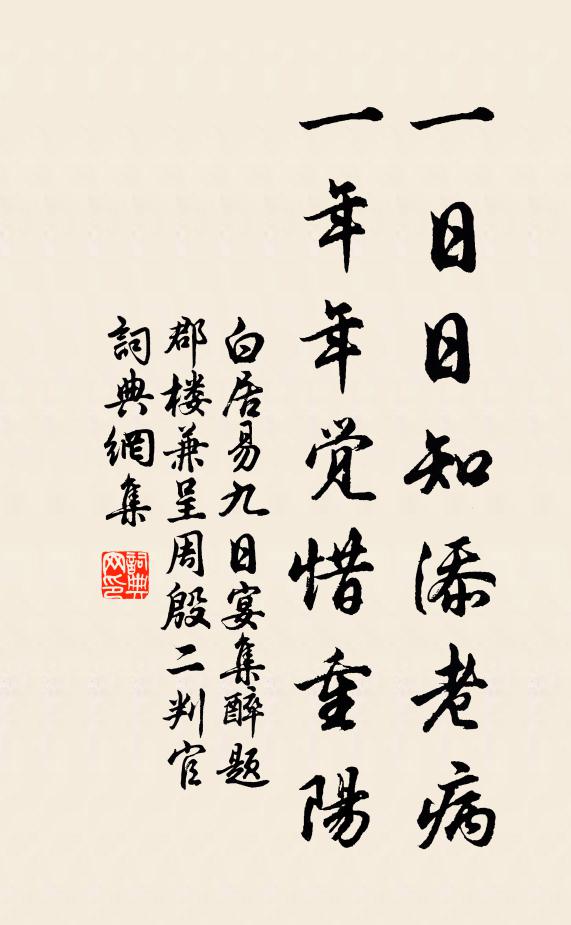 一日日知添老病
一年年觉惜重陽
白居易九日宴集醉题
郡楼兼呈周殷二判官
詞典網集
詞典
网印